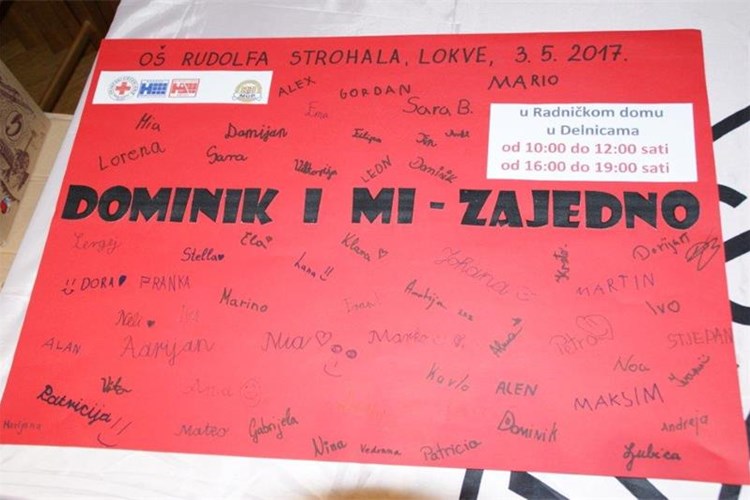 OŠ RUDOLFA STROHALA, LOKVE, 3. 5. 2017.
ALEX GORDAN MARIO
Ema Sara B.
u Radničkom domu
u Delnicama
od 10:00 do 12:00 sati
od 16:00 do 19:00 sati
Mia Damijan Filipa Tin
Lorena Sara Viktorija LEON Dominik
DOMINIK I MI - ZAJEDNO
Sergej Stella Ela Lana !! Klara Johana Krsto Dorijan
DORA FRANKA Marino Andrija MARTIN
Neli Ivo
ALAN Adrijan Mia Marko Alma Petra STJEPAN
Viktor Ana Karlo ALEN Noa Ivani
Patricija !! MAKSIM
Marijana Mateo Gabrijela Dominik Andreja
Nina Vedrana Patricia Ljubica